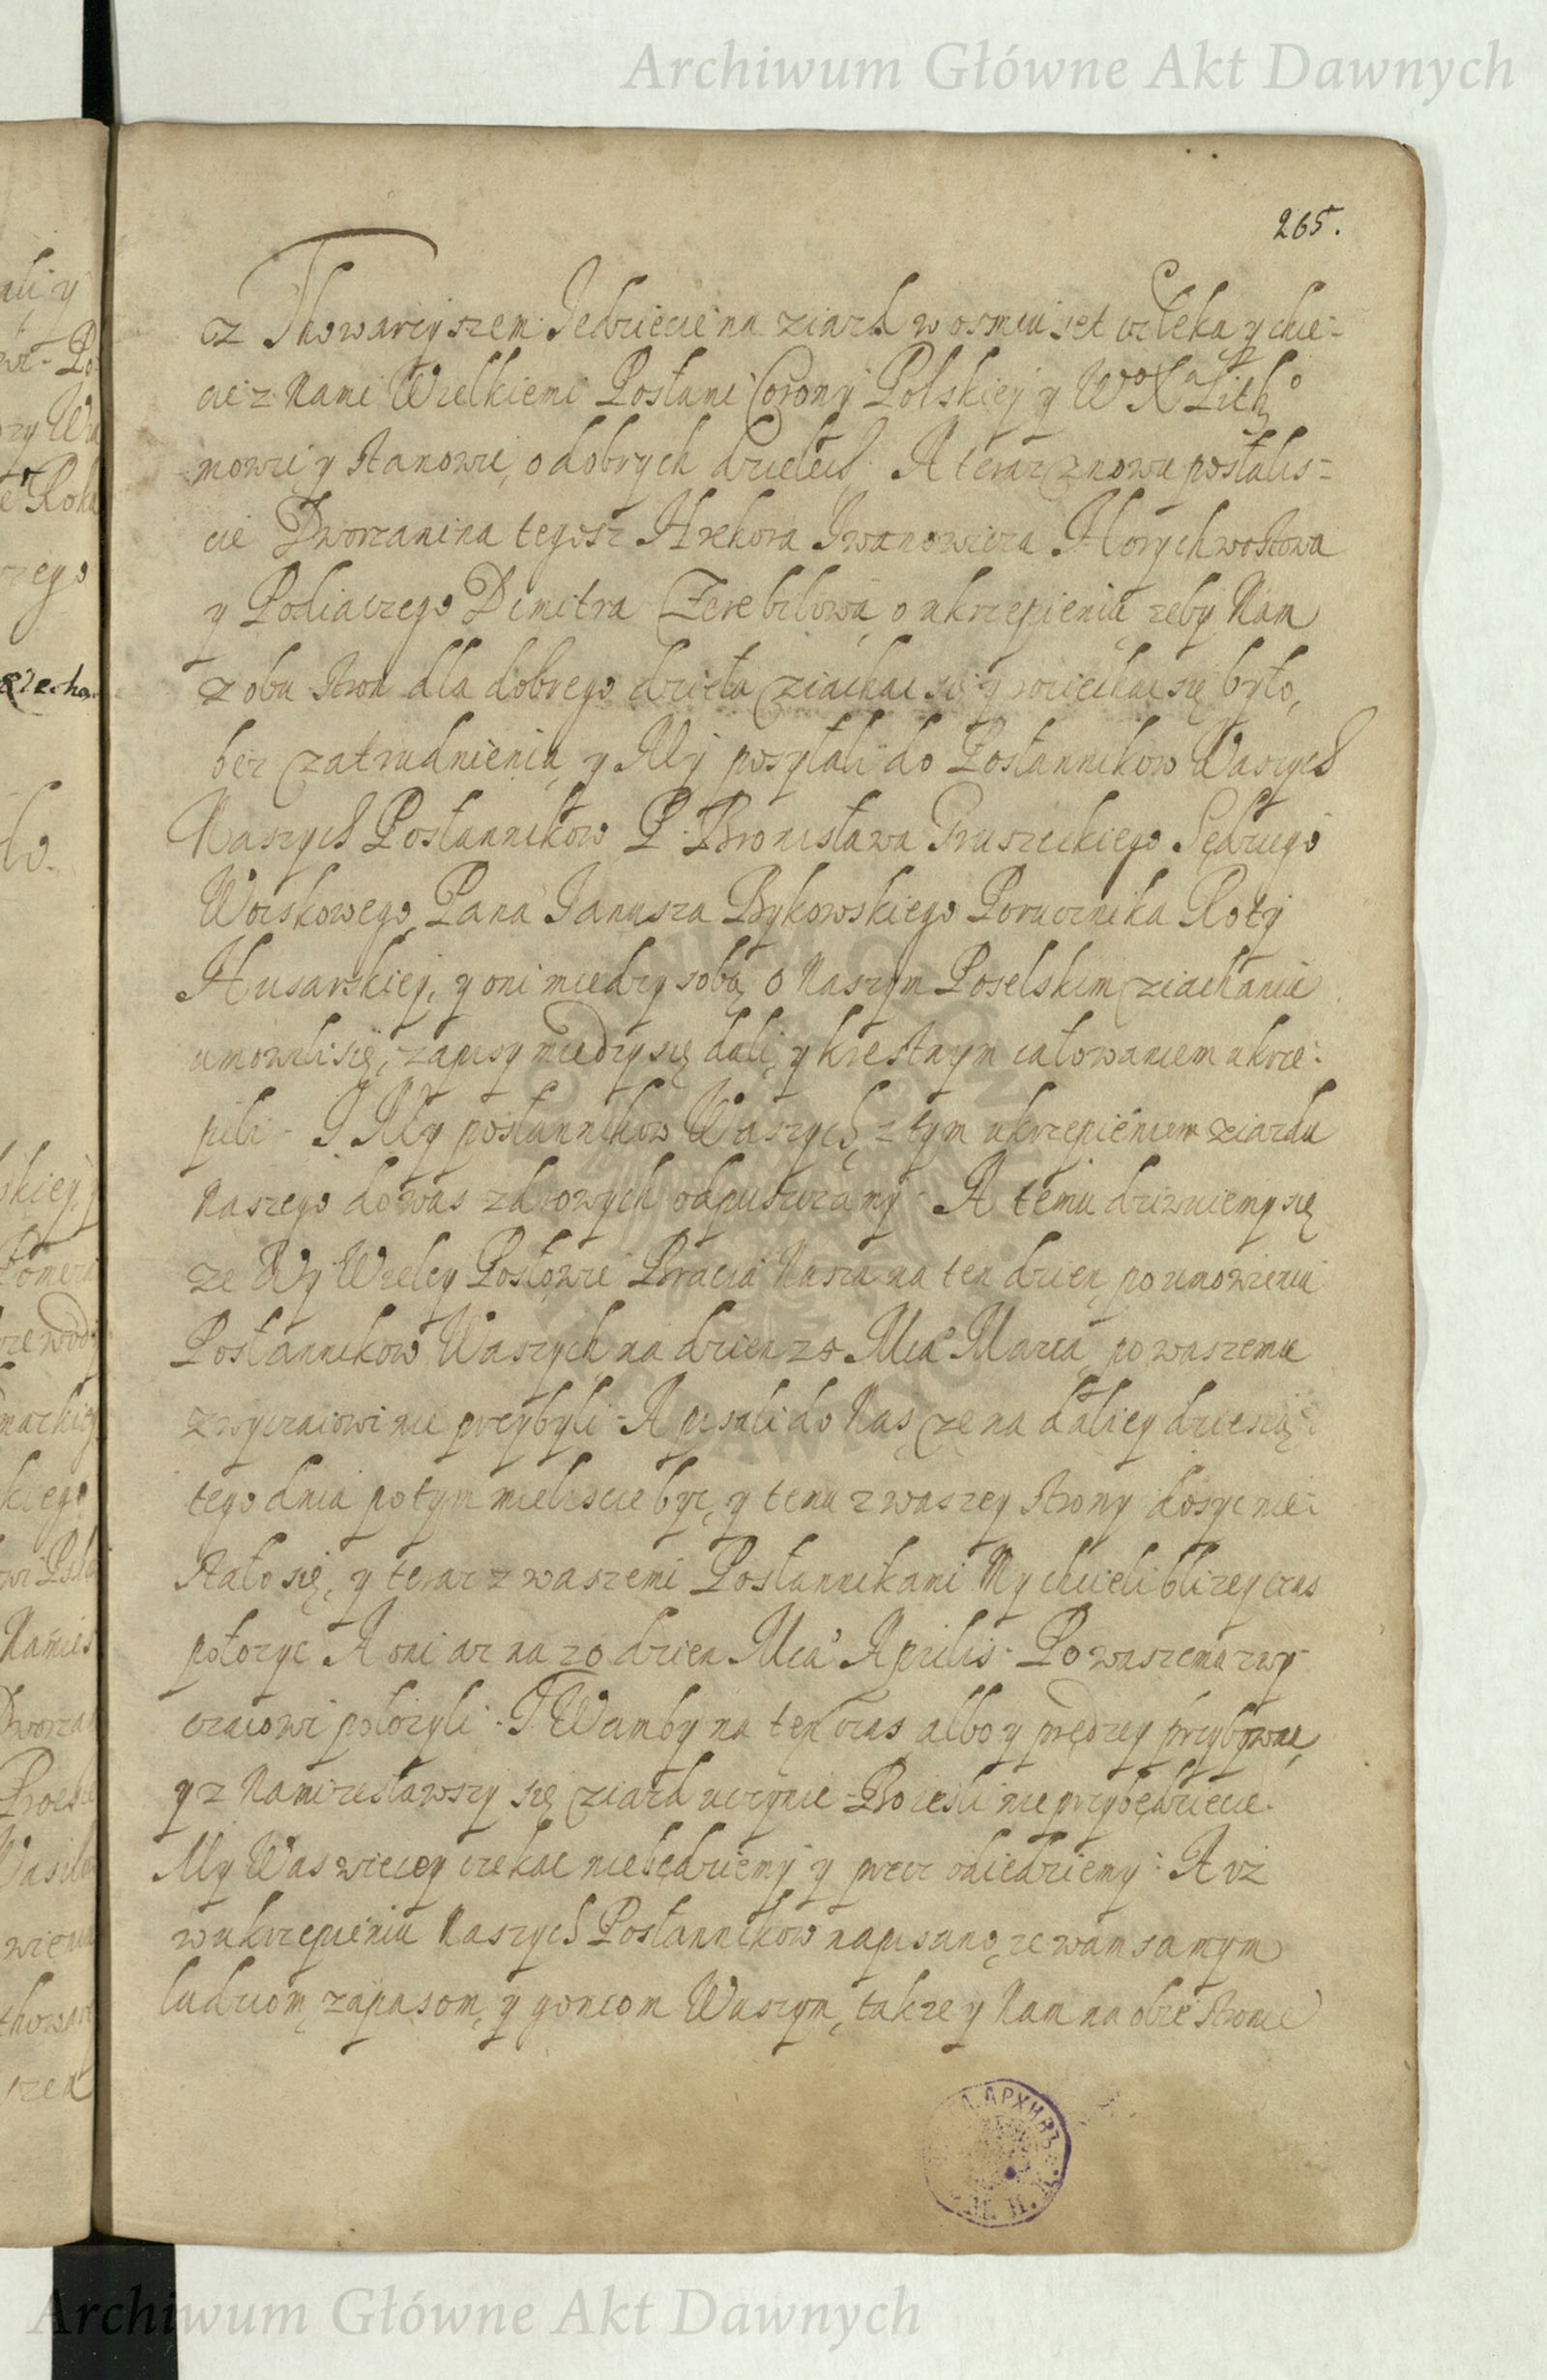 Archiwum Główne Akt Dawnych
265.
cz Thowarzyszem Jedziecie na ziazd w osmiu set człeka y chce-
cie z Nami Wielkiemi Posłami Corony Polskiey y Wº Xª Lithº
mowic y stanowic, o dobrych dzielech. A teraz znowu posłalis-
cie Dworzanina tegosz Hrehora Iwanowicza Horychwostowa
y Podiaczego Dimitra Czerebilowa, o ukrzepieniu zeby Nam
z obu stron dla dobrego dzieła ziachac się y roziechac się było,
bez zatrudnienia, y My posyłali do Posłannikow Waszych
Naszych Posłannikow P. Bronisława Gruszeckiego Sędziego
Woiskowego, Pana Janusza Bykowskiego Porucznika Roty
Husarskiey, y oni miedzy sobą o Naszym Poselskim ziachaniu
umowili się, zapisy miedzy się dali, y krestnym całowaniem ukrze-
pili - I My posłannikow Waszych, z tym ukrzepieniem ziazdu
Naszego do was zdrowych odpuszczamy - A temu dziwuiemy się
ze Wy Wielcy Posłowie Bracia Nasza na ten dzien, po umowieniu
Posłannikow Waszych na dzien 28 Mca Marca, po waszemu
zwyczaiowi nie przybyli - A pisali do Nas, ze na daliey dziesią-
tego dnia potym mieliscie byc, y temu z waszey strony dosyc nie-
stało się, y teraz z waszemi Posłannikami My chcieli bliżey czas
położyc A oni az na 20 dzien Mca Aprilis - Po waszemu zwy-
czaiowi położyli - I Wamby na ten czas albo y prędzey przybywac,
y z Nami zesławszy się ziazd uczynic - Bo iesli nie przybędziecie
My Was więcey czekac niebędziemy y precz odiedziemy: A iż
w ukrzepieniu Naszych Posłannikow napisano, ze wam samym
ludziom, zapasom, y goncom Waszym, takze y Nam na obie stronie
АРХИВЪ
Archiwum Główne Akt Dawnych